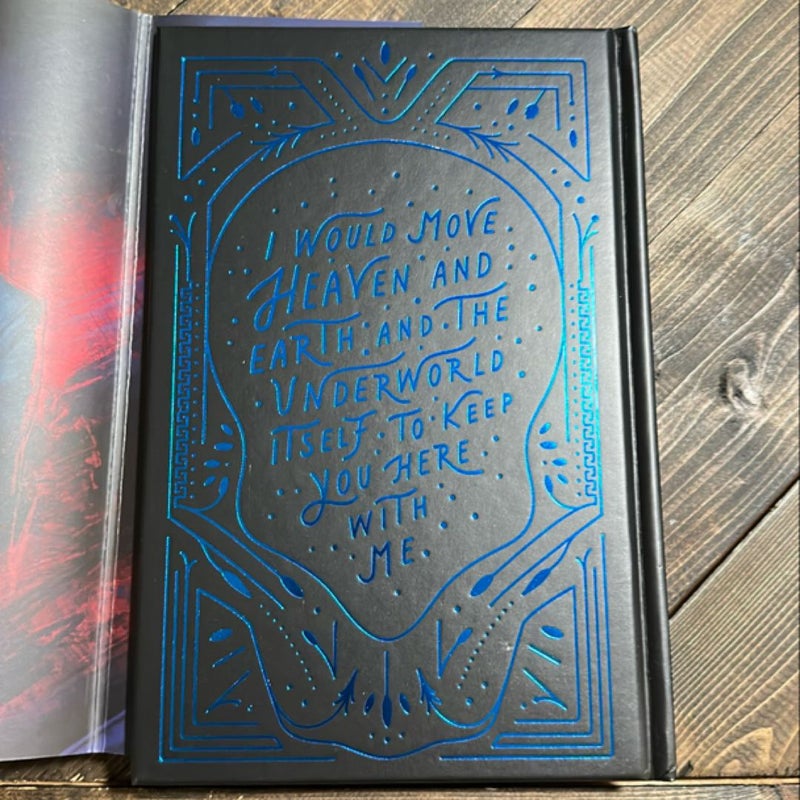 I WOULD MOVE
HEAVEN AND
EARTH AND THE
UNDERWORLD
ITSELF TO KEEP
YOU HERE
WITH
ME.